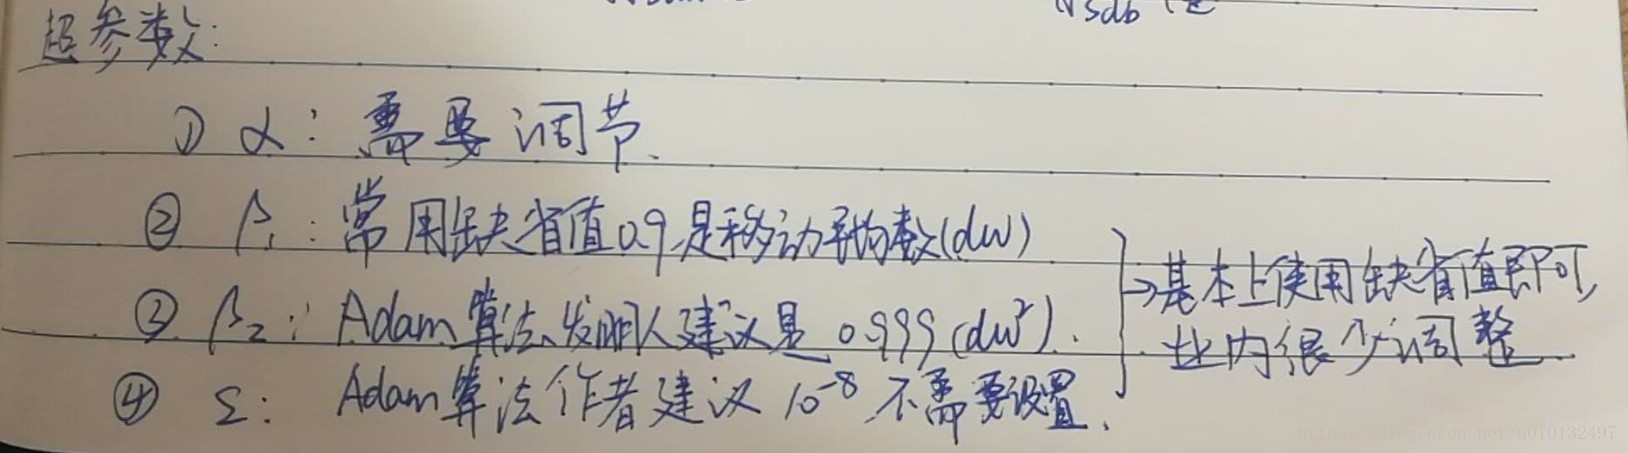 Vsdb
超参数:
① α: 需要调节.
② β₁: 常用缺省值0.9,是移动平均数(dw)
③ β₂: Adam算法发明人建议是 0.999 (dw²).
→基本上使用缺省值即可,
业内很少调整
④ ε: Adam算法作者建议 10⁻⁸ 不需要设置.